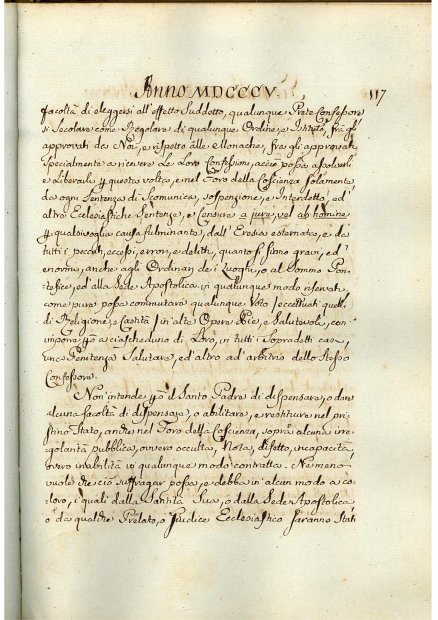 Anno MDCCCV. 117
facoltà di eleggersi all'effetto Suddetto, qualunque Prete Confessore
sì Secolare come Regolare di qualunque Ordine, e Istituto, fra gli
approvati da Noi, e rispetto alle Monache, fra gli approvati
Specialmente a ricevere Le Loro Confessioni, acciò possa assolverli
e Liberarli p questa volta, e nel Foro della Coscienza solamente
da ogni Sentenza di Scomunica, sospenzione, e Interdetto, ed
altre Ecclesiastiche Sentenze, e Censure a jure, vel ab homine
p qualsivoglia causa fulminante, dall'Eresia esternata, e da
tutti i peccati, eccessi, errori, e delitti, quanto si siano gravi, ed
enormi, anche agli Ordinarj de i Luoghi, o al Sommo Pon=
tefice, ed alla Sede Apostolica in qualunque modo riservati,
come pure possa commutare qualunque Voto /eccettuati quelli
di Religione, e Castità/ in altre Opere Pie, e Salutevoli, con
imporre pò a ciascheduno di Loro, in tutti i Sopradetti casi
Una Penitenza Salutare, ed altro ad arbitrio dello Stesso
Confessore.
Non intende pò il Santo Padre di dispensare, o dare
alcuna facoltà di dispensare, o abilitare, e restituire nel pri=
stino Stato, anche nel Foro della Coscienza, sopra alcuna irre
golarità pubblica, ovvero occulta, Nota, difetto, incapacità,
ovvero inabilità in qualunque modo contratta. Ne meno
vuole che ciò suffragar possa, e debba in alcun modo a co=
loro, i quali dalla Santità Sua, o dalla Sede Apostolica
o da qualche Prelato, o Giudice Ecclesiastico saranno Stati